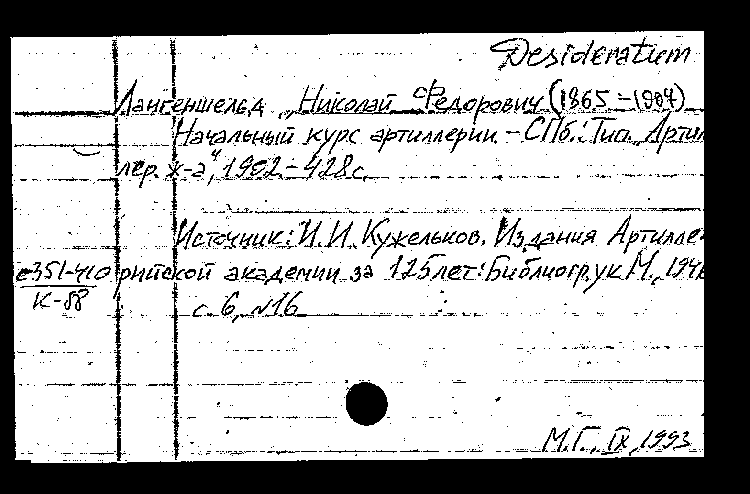 Desideratum
Лангеншельд, Николай Федорович (1865–1904)
Начальный курс артиллерии. – СПб.: Тип. „Артил
лер. ж-а“, 1902. – 428 с.
Источник: И. И. Кужельков. Издания Артилле-
е351-410 рийской академии за 125 лет: Библиогр. ук М., 1946
К-88 с. 6, №16
М.Г., IX, 1993